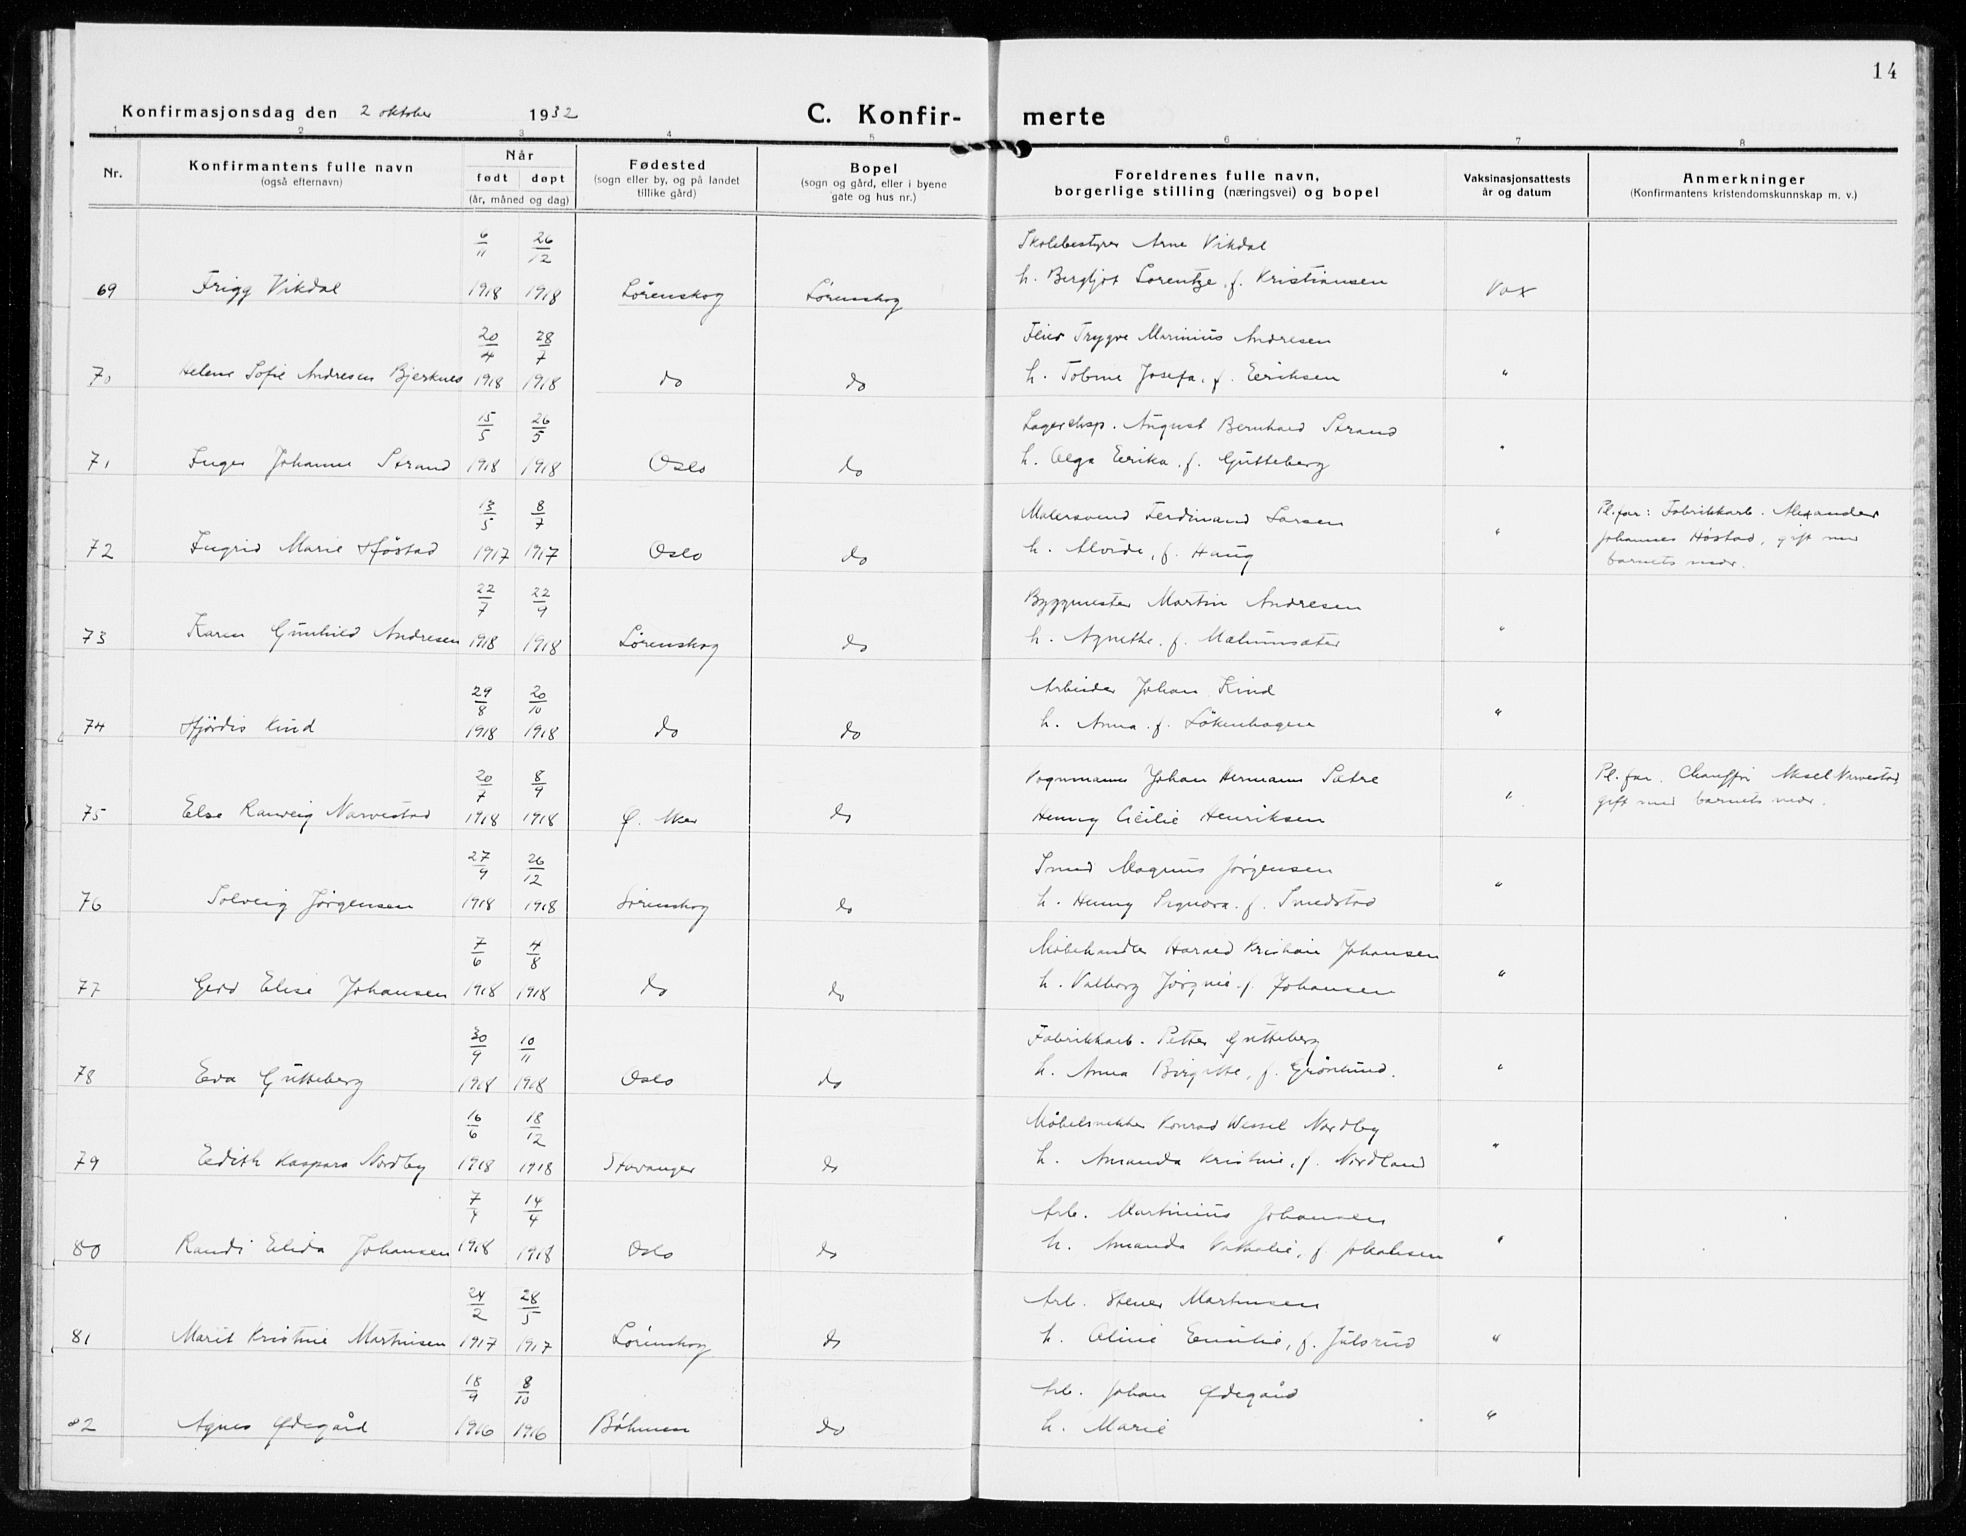 14
Konfirmasjonsdag den 2 oktober 1932
C. Konfir- merte
1 2 3 4 5 6 7 8
Nr.
Konfirmantens fulle navn
(også efternavn)
Når
født døpt
(år, måned og dag)
Fødested
(sogn eller by, og på landet
tillike gård)
Bopel
(sogn og gård, eller i byene
gate og hus nr.)
Foreldrenes fulle navn,
borgerlige stilling (næringsvei) og bopel
Vaksinasjonsattests
år og datum
Anmerkninger
(Konfirmantens kristendomskunnskap m. v.)
6/11 26/12 Skolebestyrer Arne Vikdal
69 Frigg Vikdal 1918 1918 Lørenskog Lørenskog h. Bergljot Lorentze, f. Kristiansen Vax
20/4 28/7 Feier Trygve Marinius Andresen
70 Helene Sofie Andresen Bjerknes 1918 1918 do do h. Tobine Josefa, f. Eeriksen "
15/5 26/5 Lagereksp. August Bernhard Strand
71 Inger Johanne Strand 1918 1918 Oslo do h. Olga Eerika, f. Gutteberg "
13/5 8/7 Malersvend Ferdinand Larsen Pl.far: Fabrikkarb. Alexander
72 Ingrid Marie Høstad 1917 1917 Oslo do h. Alvide, f. Haug " Johannes Høstad, gift med
barnets mor.
22/7 22/9 Byggmester Martin Andresen
73 Karen Gunhild Andresen 1918 1918 Lørenskog do h. Agnethe, f. Malumsæter "
29/8 20/10 Arbeider Johan Kind
74 Hjørdis Kind 1918 1918 do do h. Anna f. Løkenhagen "
20/7 8/9 Vognmann Johan Hermann Sætre Pl. far. Chauffør Aksel Narvestad
75 Else Ranveig Narvestad 1918 1918 Ø. Aker do Henny Cicilie Henriksen " gift med barnets mor.
27/9 26/12 Smed Magnus Jørgensen
76 Solveig Jørgensen 1918 1918 Lørenskog do h. Henny Signora f. Smedstad "
7/6 4/8 Møbelhandler Harald Kristian Johansen
77 Gerd Elise Johansen 1918 1918 do do h. Valborg Jørgine f. Johansen "
30/9 10/11 Fabrikkarb. Petter Gutteberg
78 Eva Gutteberg 1918 1918 Oslo do h. Anna Birgitte, f. Grønlund. "
16/6 18/12 Møbelsnekker Konrad Wessel Nordby
79 Edith Kaspara Nordby 1918 1918 Stavanger do h. Amanda Kristine, f. Nordland "
7/4 14/4 Arb. Martinius Johansen
80 Randi Elida Johansen 1918 1918 Oslo do h. Amanda Nathalie, f. Johansen "
24/2 28/5 Arb. Stener Martinsen
81 Marit Kristine Martinsen 1917 1917 Lørenskog do h. Oline Emilie, f. Julsrud "
18/9 8/10 Arb. Johan Ødegård
82 Agnes Ødegård 1916 1916 Bøhmen do h. Marie "